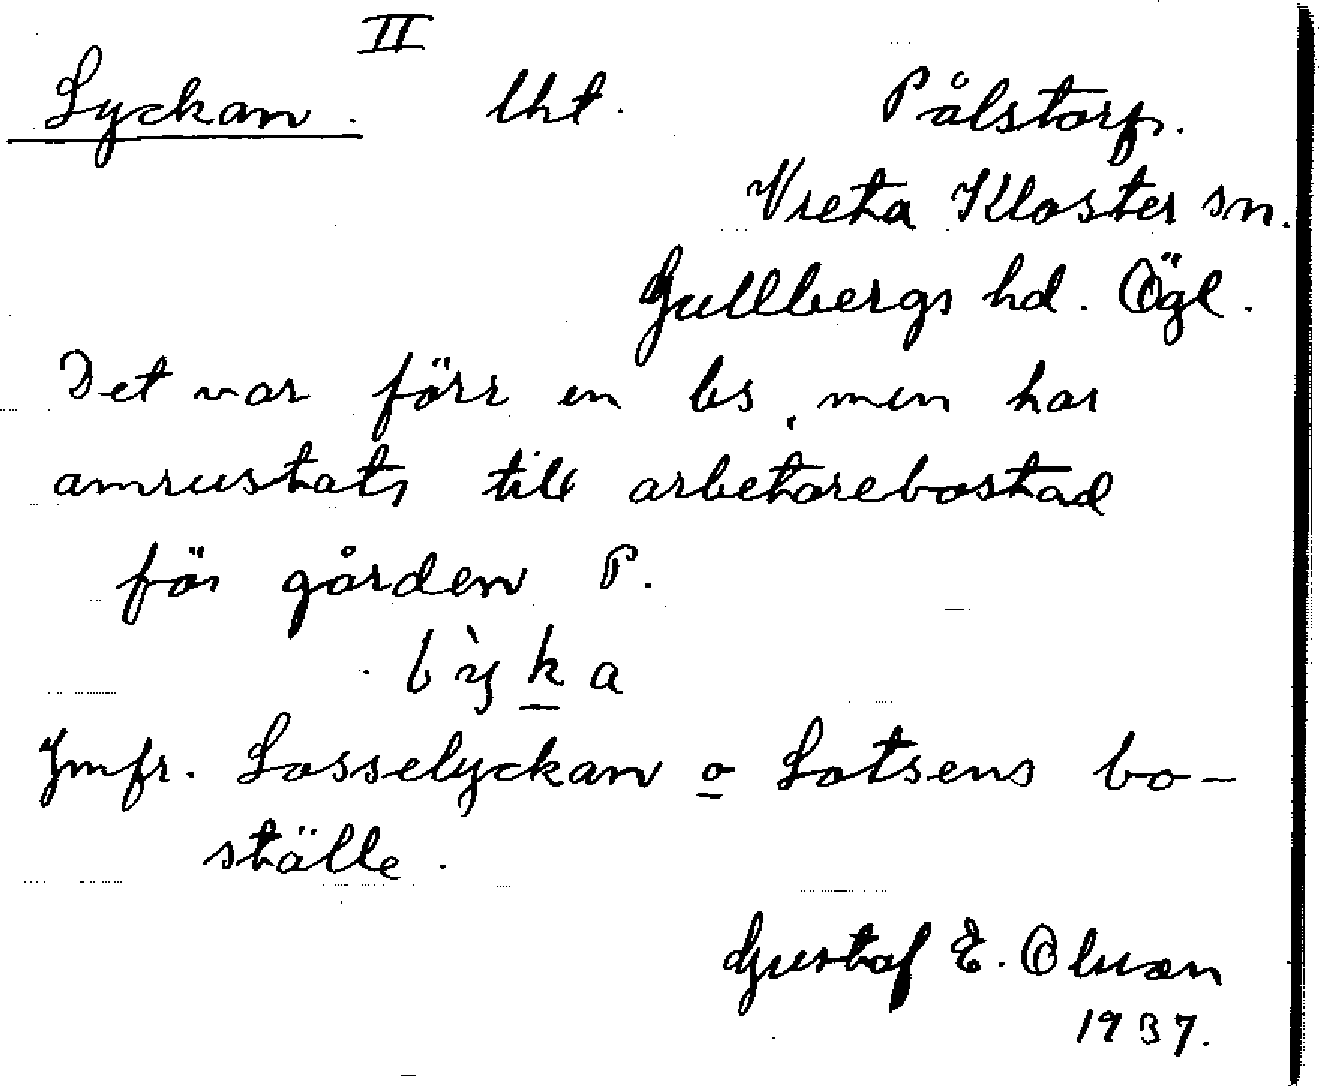 II
Lyckan. lht. Pålstorp.
Vreta Kloster sn.
Gullbergs hd. Ögl.
Det var förr en bs, men har
omrustats till arbetarebostad
för gården P.
lỳka
Jmfr. Lasselyckan o Lotsens bo-
ställe.
Gustaf E. Olsson
1937.